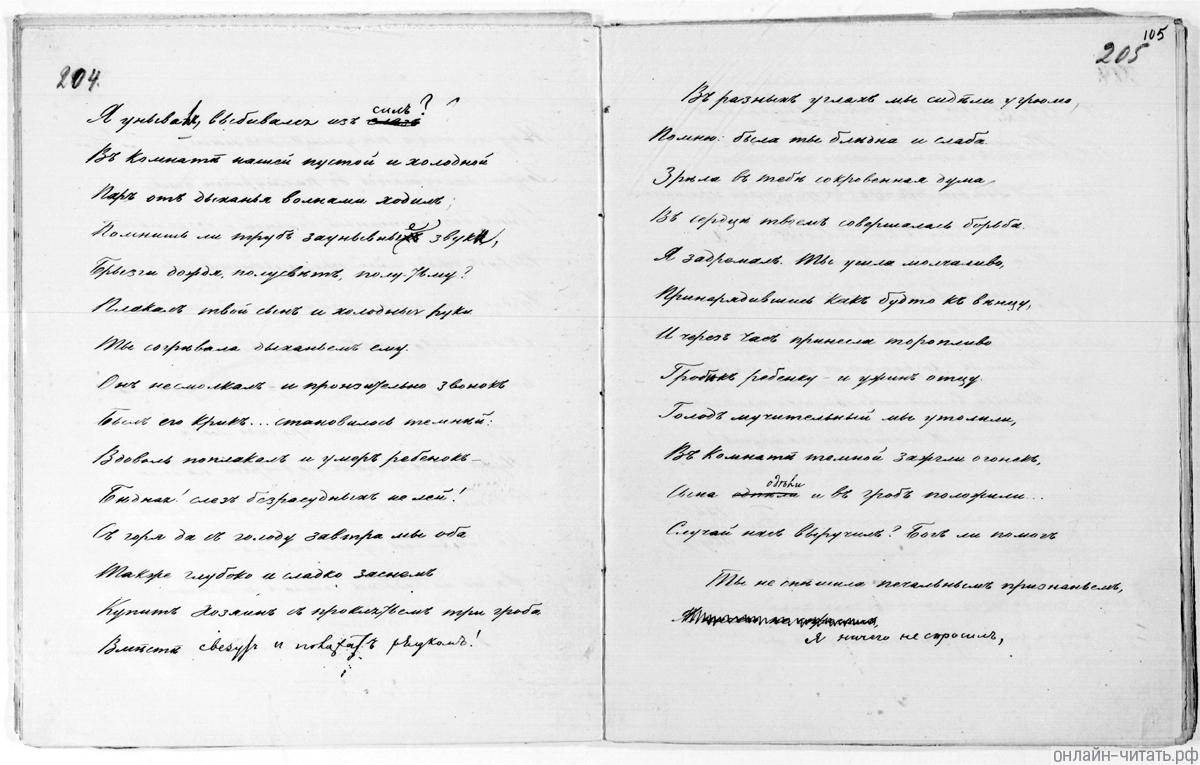 204.
Я унывалъ, выбивался изъ слезъ силъ?
Въ комнатѣ нашей пустой и холодной
Паръ отъ дыханья волнами ходилъ;
Помнишь ли трубъ заунывные звуки,
Брызги дождя, полусвѣтъ, полутьму?
Плакалъ твой сынъ и холодныя руки
Ты согрѣвала дыханьемъ ему.
Онъ не смолкалъ – и пронзительно звонокъ
Былъ его крикъ... становилось темнѣй:
Вдоволь поплакалъ и умеръ ребенокъ –
Бѣдная! слезъ безразсудныхъ не лей!
Съ горя да съ голоду завтра мы оба
Также глубоко и сладко заснемъ
Купитъ хозяинъ съ проклятьемъ три гроба
Вмѣстѣ свезутъ и положатъ рядкомъ!
105
205
Въ разныхъ углахъ мы сидѣли угрюмо,
Помню: была ты блѣдна и слаба
Зрѣла въ тебѣ сокровенная дума,
Въ сердцѣ твоемъ совершалась борьба.
Я задремалъ. Ты ушла молчаливо,
Принарядившись какъ будто къ вѣнцу,
И черезъ часъ принесла торопливо
Гробикъ ребенку – и ужинъ отцу.
Голодъ мучительный мы утолили,
Въ комнатѣ темной зажгли огонекъ,
Сына одѣли и въ гробъ положили...
Случай насъ выручилъ? Богъ ли помогъ
Ты не спѣшила печальнымъ признаньемъ,
Я ничего не спросилъ,
онлайн-читать.рф